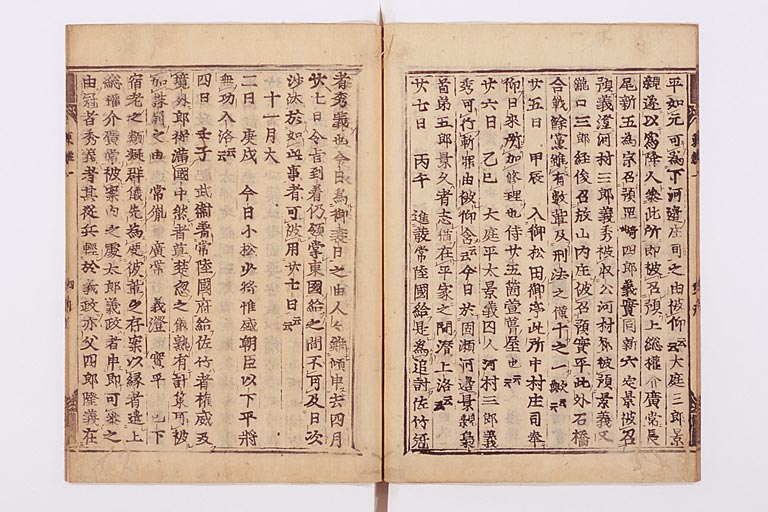 平如元可為下河邊庄司之由被仰云云大庭三郎景
親遂以為降人參此所即被召預上総權介廣常長
尾新五為宗召預岡崎四郎義實同新六定景被召
預義澄河村三郎義秀被收公河村郷被預景義又
瀧口三郎經俊召放山内庄被召預實平此外石橋
合戰餘黨雖有數輩及刑法之僅十之一歟云云
廿五日 甲辰 入御松田御亭此所中村庄司奉
仰日來所加修理也侍廿五箇間萱葺屋也云云
廿六日 乙巳 大庭平太景義囚人河村三郎義
秀可行斬罪由被仰含云云今日於固瀬河邊景親梟
首弟五郎景久者志猶在平家之間潜上洛云云
廿七日 丙午 進發常陸國給是為追討佐竹冠
者秀義也今日為御衰日之由人々雖傾申去四月
廿七日令旨到着仍領掌東國給之間不可及日次
沙汰於如此事者可被用廿七日云云
十一月大
二日 庚戌 今日小松少將惟盛朝臣以下平將
無功入洛云云
四日 壬子 武衛著常陸國府給佐竹者權威及
境外郎從滿國中然者莫楚忽之儀熟有計策可被
加誅罸之由 常胤 廣常 義澄 實平 已下
宿老之類凝群儀先為度彼輩之存案以縁者遣上
総權介廣常被案内之處太郎義政者申即可參之
由冠者秀義者其從兵軼於義政亦父四郎隆義在